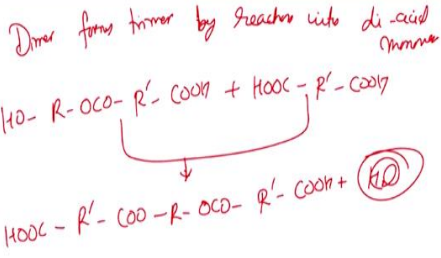 Dimer forms trimer by reaction with di-acid
monomer
HO- R- OCO- R'- COOH + HOOC - R'- COOH
HOOC - R'- COO -R- OCO- R'- COOH + H2O